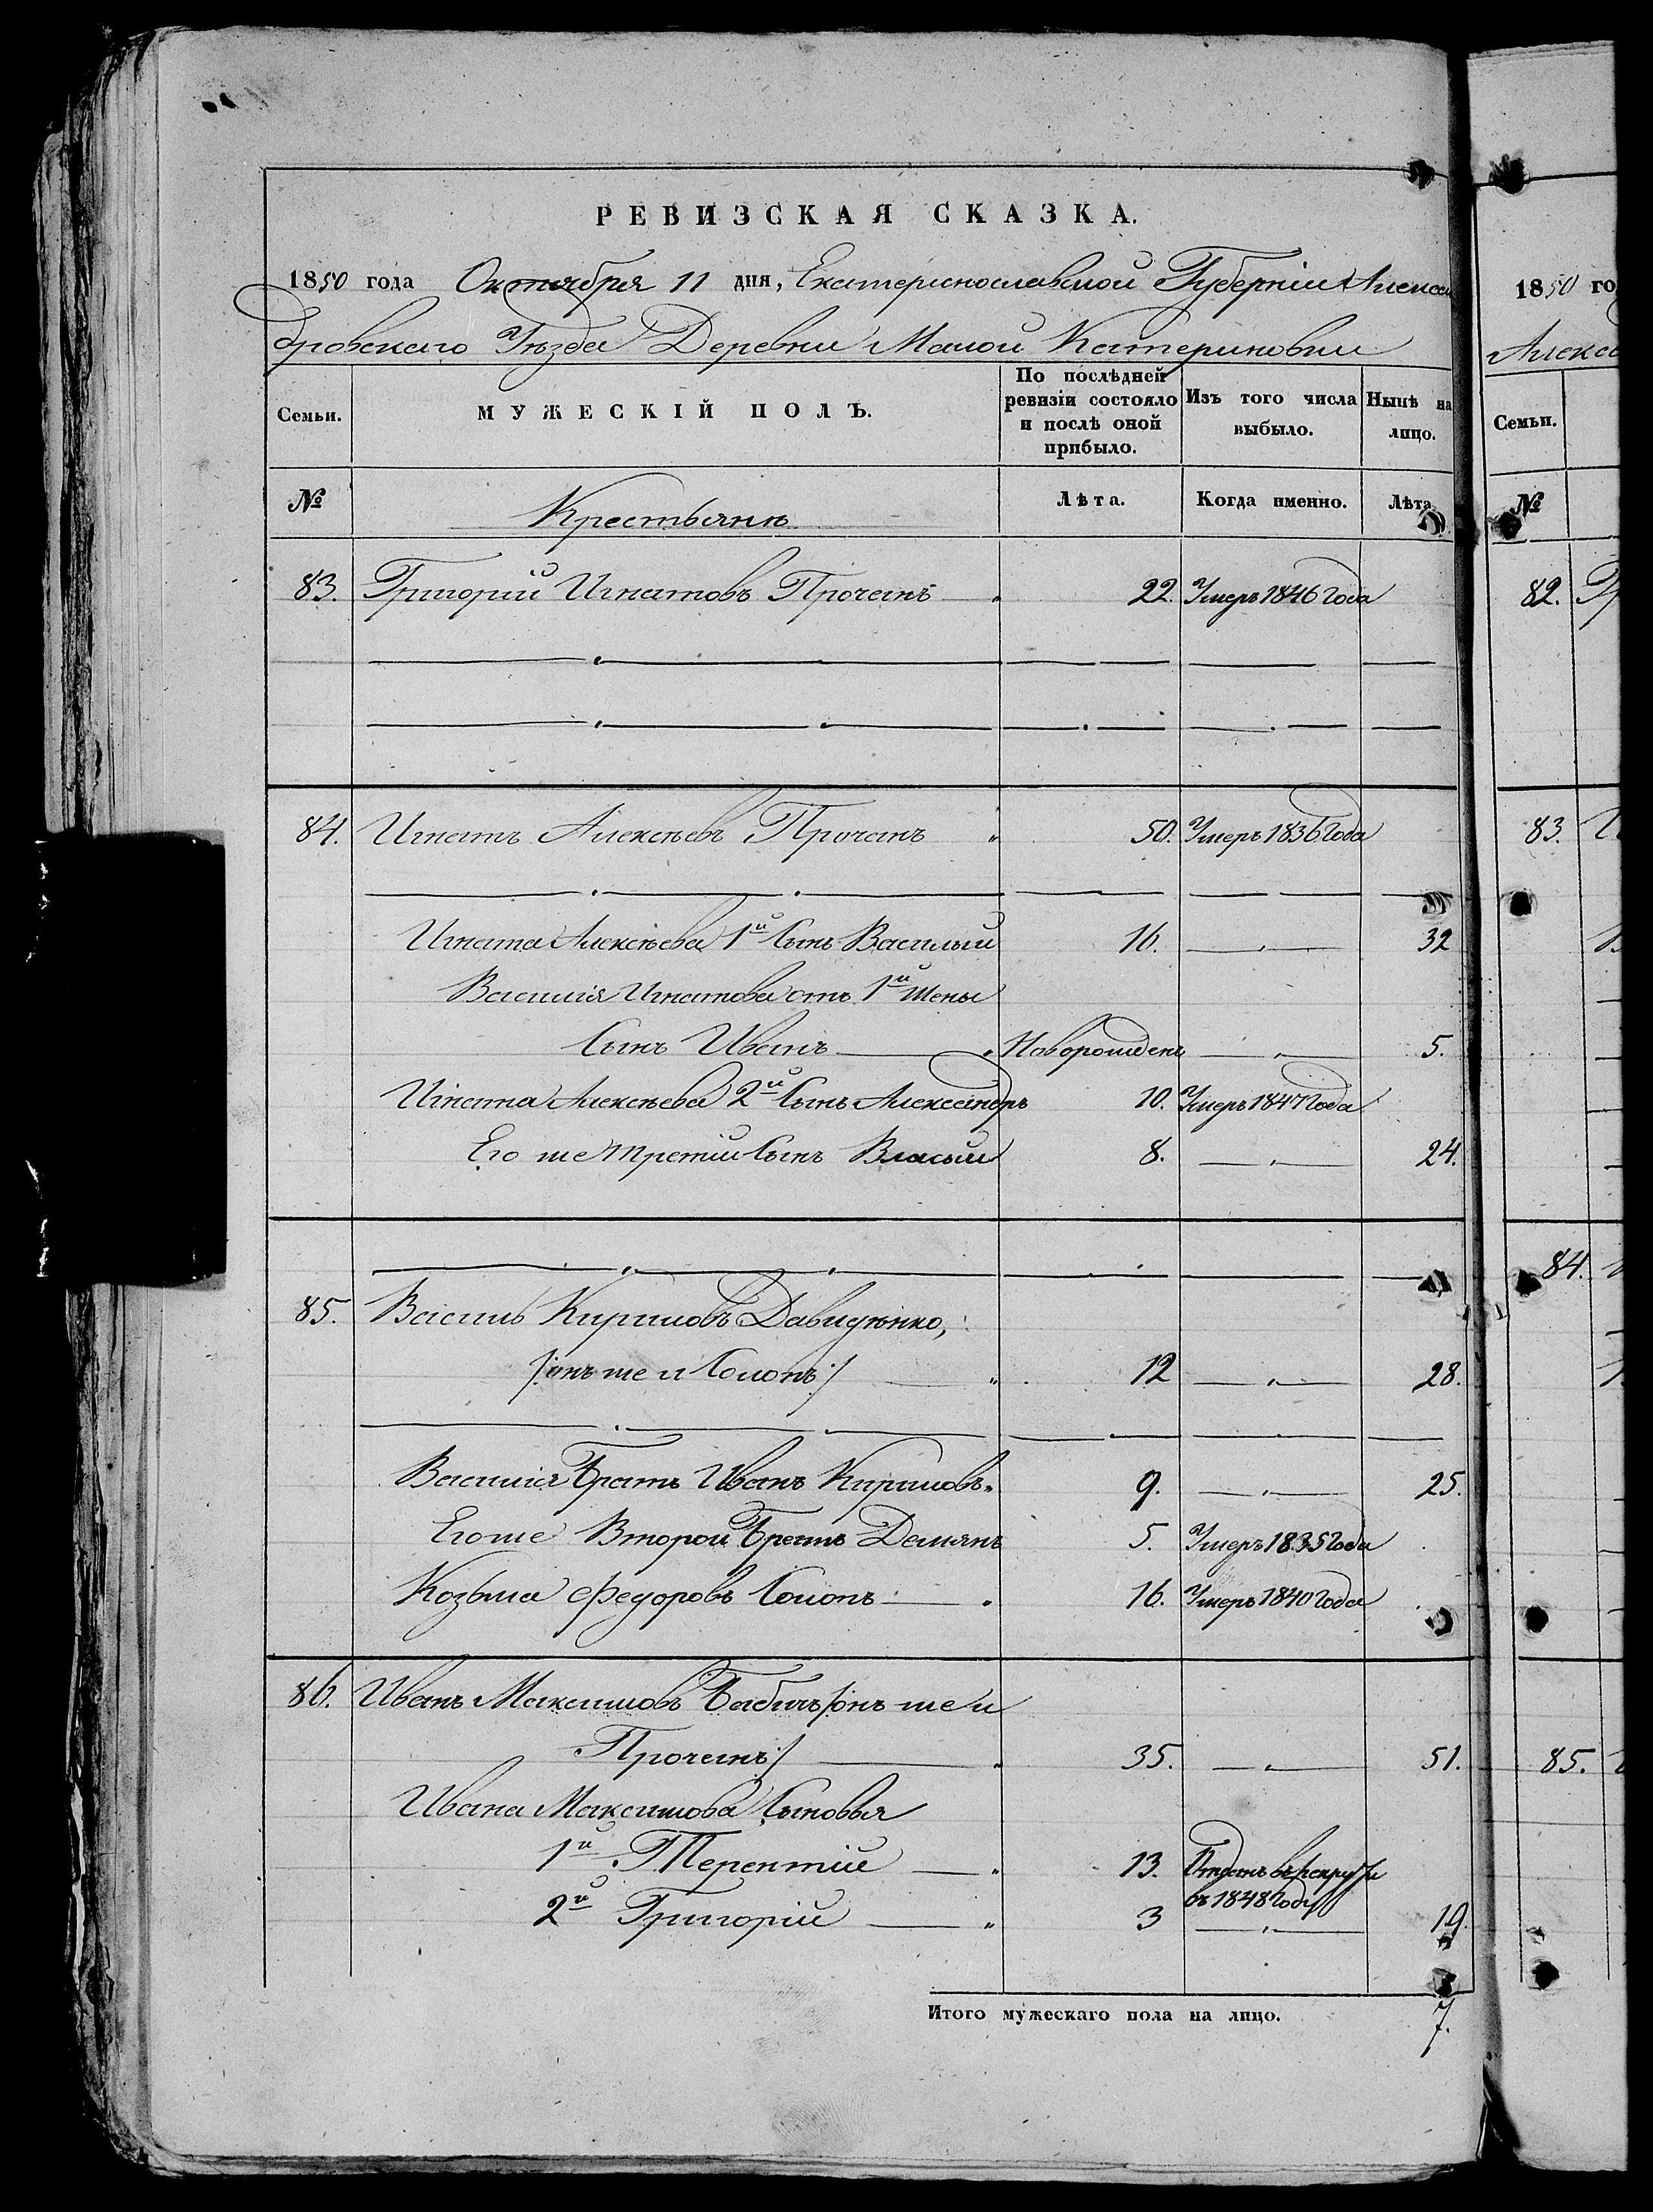 РЕВИЗСКАЯ СКАЗКА.
1850 года Октября 11 дня, Екатеринославской Губерніи Алексан
дровскаго Уѣзда Деревни Малой Катериновки
Семьи. МУЖЕСКІЙ ПОЛЪ. По послѣдней ревизіи состояло и послѣ оной прибыло. Изъ того числа выбыло. Нынѣ на лицо.
№ Крестьянѣ Лѣта. Когда именно. Лѣта
83. Григорій Игнатовъ Прочанъ 22. Умеръ 1846 года
84. Игнатъ Алексѣевъ Прочанъ 50. Умеръ 1836 года
Игната Алексѣева 1й Сынъ Василий 16. 32
Василія Игнатова отъ 1й Жены
Сынъ Иванъ Новорожденъ 5.
Игната Алексѣева 2й Сынъ Александръ 10. Умеръ 1847 года
Его же третій Сынъ Власий 8. 24.
85. Василь Кириловъ Давидѣнко,
/:онъ же и Солопъ:/ 12 28.
Василія Братъ Иванъ Кириловъ 9. 25.
Его же Второй Братъ Демянъ 5. Умеръ 1835 года
Козьма Федоровъ Солопъ 16. Умеръ 1840 года
86. Иванъ Максимовъ Бабичъ /:онъ же и
Прочанъ:/ 35. 51.
Ивана Максимова Сыновья
1й Терентій 13. Отданъ въ рекруты
въ 1848 году
2й Григорій 3 19.
Итого мужескаго пола на лицо. 7.
1850 го
Алекса
Семьи.
№
82. Гр
83.
84.
85.